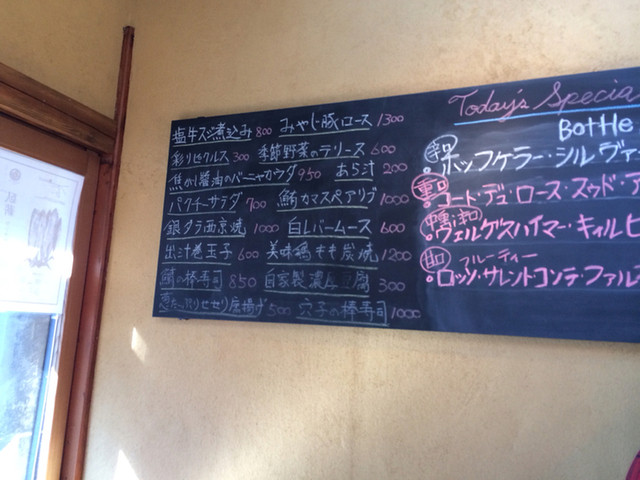 塩牛スジ煮込み 800 みやじ豚ロース 1300
彩りピクルス 300 季節野菜のテリーヌ 600
焦がし醤油のバーニャカウダ 950 あら汁 200
パクチーサラダ 700 鮪カマスペアリブ 1000
銀タラ西京焼 1000 白レバームース 600
出汁巻玉子 600 美味鶏もも炭焼 1200
鯖の棒寿司 850 自家製濃厚豆腐 300
せせり唐揚げ 500 穴子の棒寿司 1000
Today's Specia
Bottle
ホッフケラー・シルヴァー
重口
コート・デュ・ローヌ・スゥド・ア
ヴェルゲスハイマー・キィルヒ
甘口 フルーティー
ロッソ・サレントコンテ・ファル